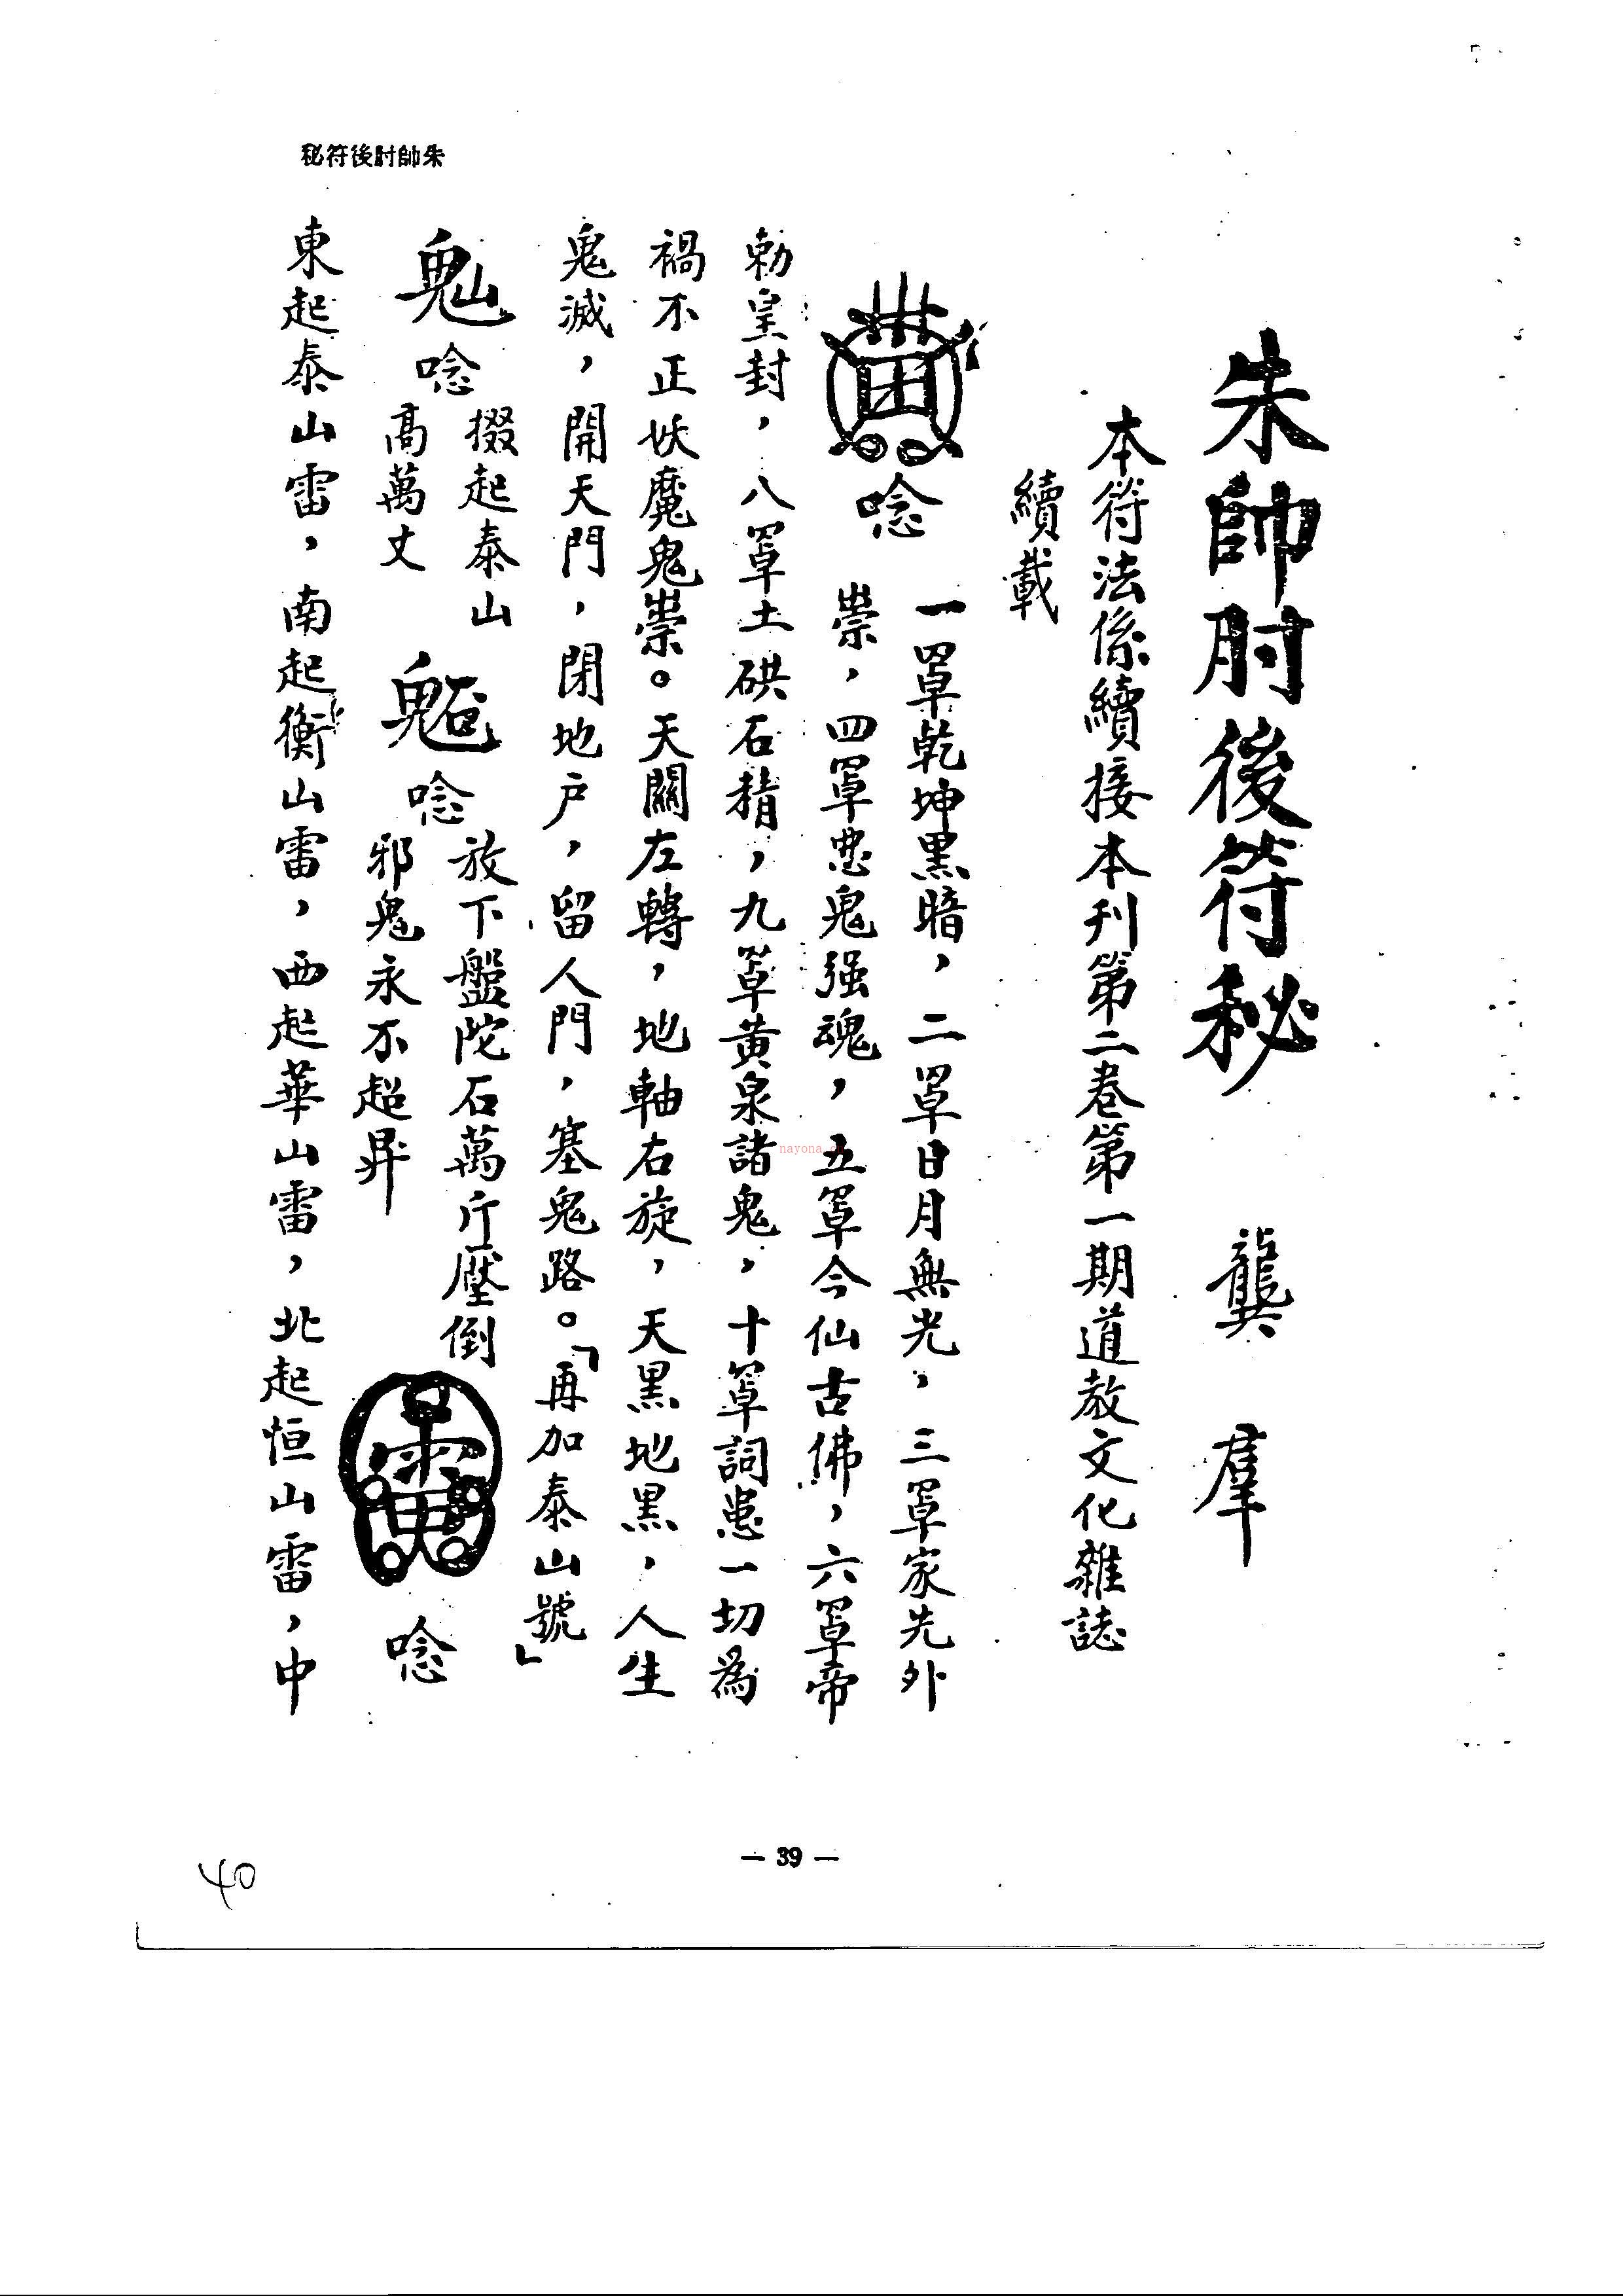 朱帥肘後符秘
朱帥肘後符秘　龔羣
本符法係續接本刊第二卷第一期道教文化雜誌
續載
唸
一罩乾坤黑暗，二罩日月無光，三罩家先外
祟，四罩惡鬼强魂，五罩今仙古佛，六罩帝
勅皇封，八罩土硔石精，九罩黃泉諸鬼，十罩詞患一切為
禍不正妖魔鬼祟。天關左轉，地軸右旋，天黑地黑，人生
鬼滅，開天門，閉地户，留人門，塞鬼路。「再加泰山號」
唸
掇起泰山
高萬丈
唸
放下盤陀石萬斤壓倒
邪鬼永不超昇
唸
東起泰山雷，南起衡山雷，西起華山雷，北起恒山雷，中
— 39 —
40
nayona.